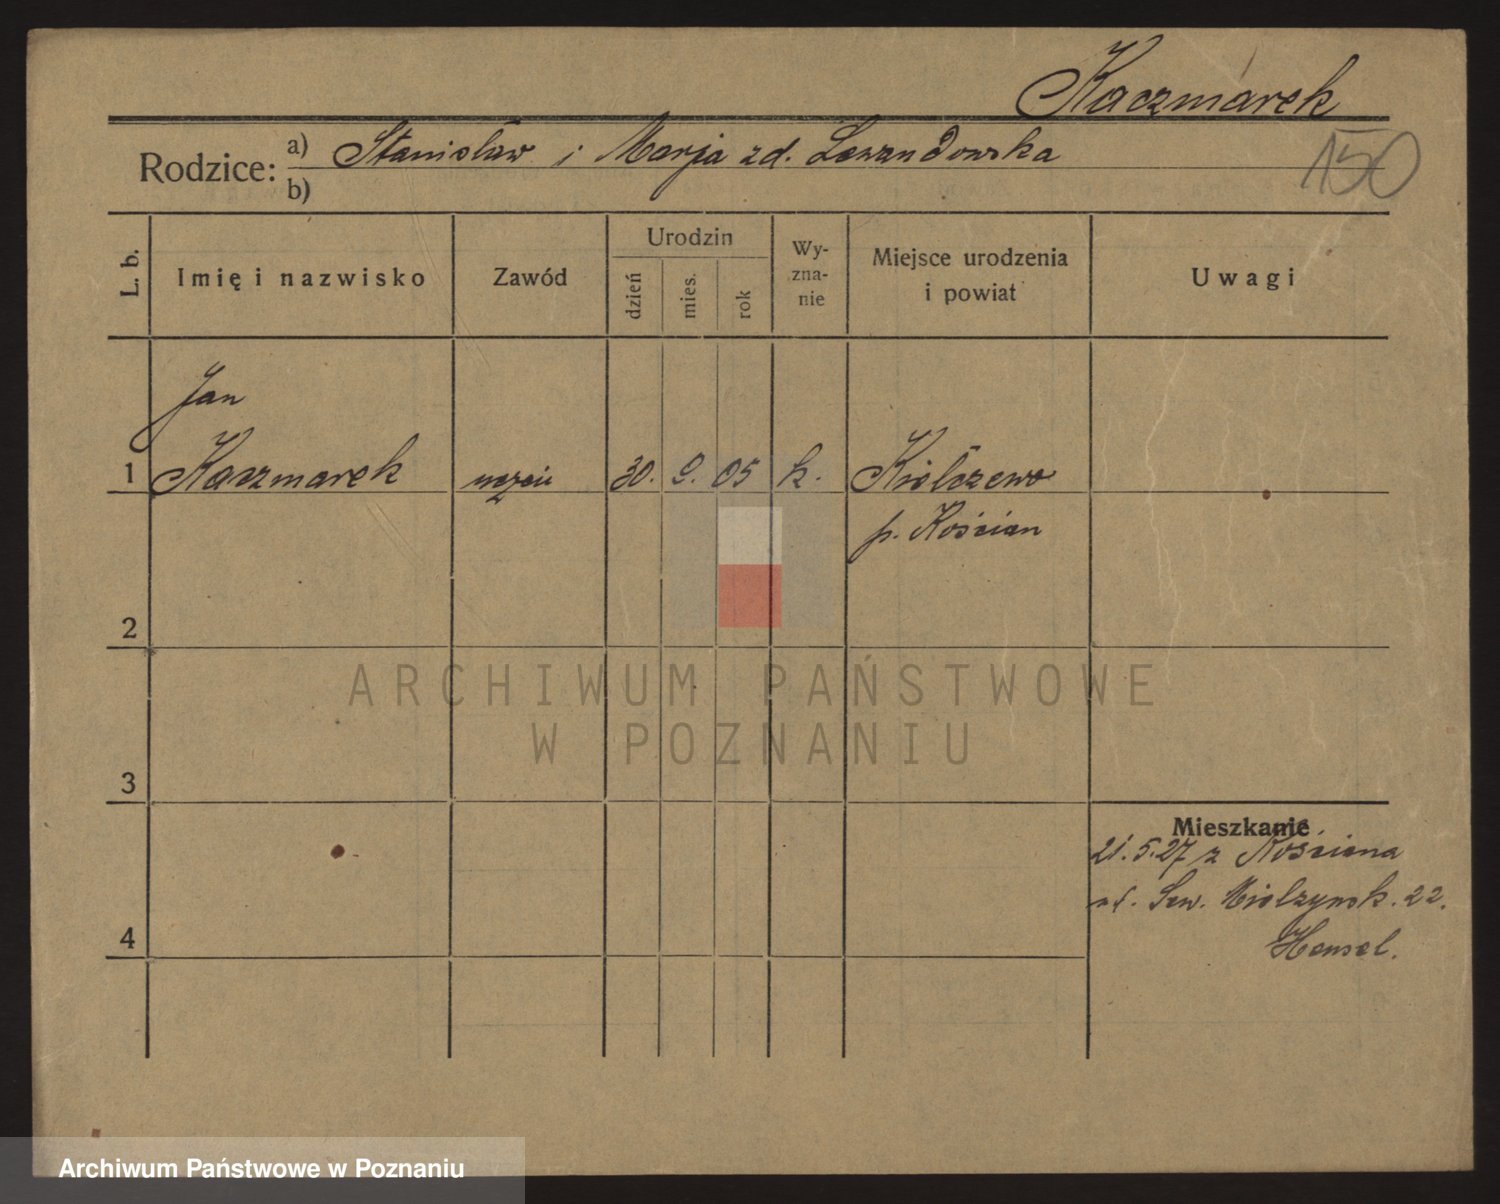 Kaczmarek
Rodzice: a) Stanisław i Marja zd. Lewandowska
150
b)
L. b.
Imię i nazwisko
Zawód
Urodzin
dzień
mies.
rok
Wy-
zna-
nie
Miejsce urodzenia
i powiat
Uwagi
Jan
1 Kaczmarek uczeń 30. 9. 05 k. Kiełczewo
p. Kościan
2
ARCHIWUM PAŃSTWOWE
W POZNANIU
3
Mieszkanie
21.5.27 z Kościana
Sew. Mielżyńsk. 22.
4
Hensel.
Archiwum Państwowe w Poznaniu